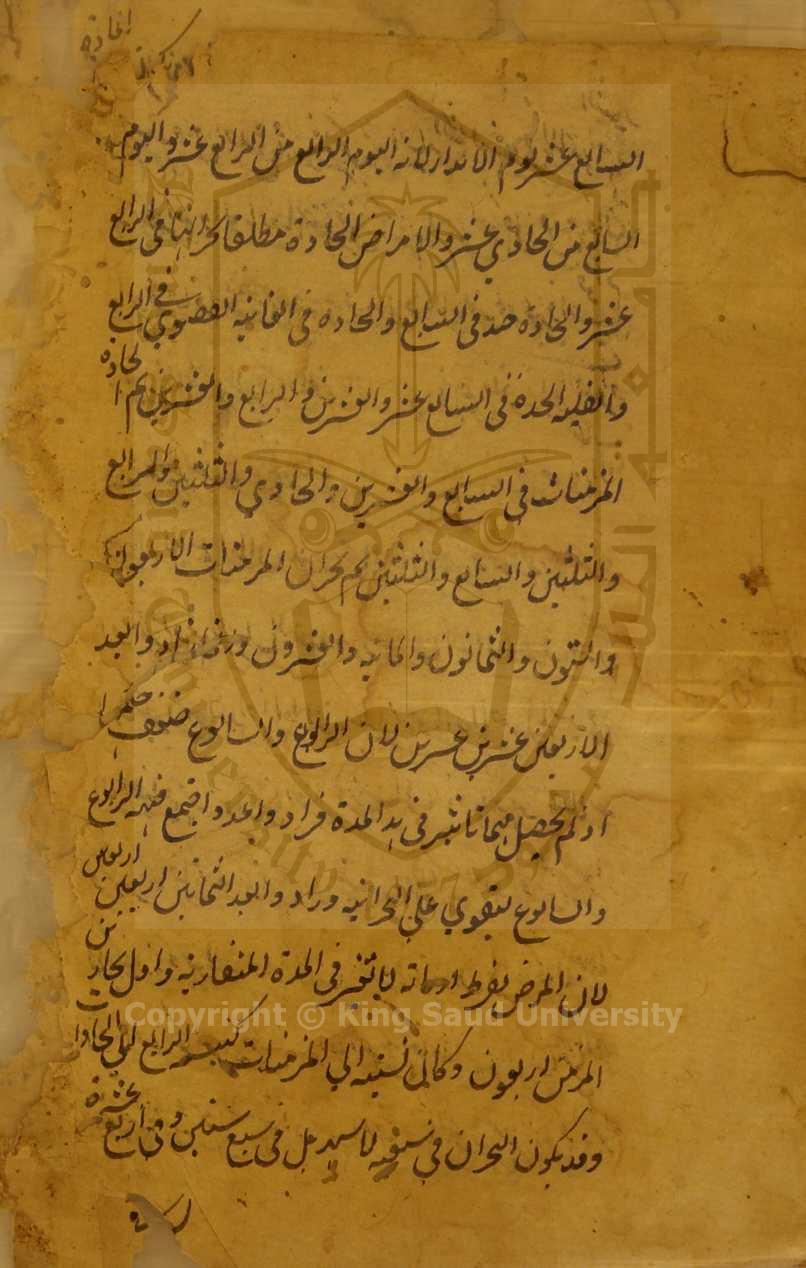 السابع عشر يوم الانذار لانه اليوم الرابع من الرابع عشر واليوم
السابع من الحادي عشر والامراض الحادة مطلقا بحرانها في الرابع
عشر والحادة جدا في السابع والحادة في الغاية القصوي في الرابع
والقليلة الحدة في السابع عشر والعشرين والرابع والعشرين ثم الحادة
المزمنات في السابع والعشرين والحادي والثلثين والرابع
والثلثين والسابع والثلثين ثم بحران المزمنات الاربعون
والستون والثمانون والماية والعشرون وبعد
الاربعين عشرين عشرين لان الرابوع والسابوع ضعف حكمهما
اذ لم يحصل بهما تاثير في هذه المدة فزادوا العدد واجتمع فيه الرابوع
والسابوع ليقوي علي البحرانية وزادوا بعد الثمانين اربعين اربعين
لان المرض لفرط ازمانه لا يتغير في المدة المتقاربة واول بحارين
المزمن اربعون وكان نسبته الي المزمنات كنسبة الرابع الي الحادات
وقد يكون البحران في سنة لا بل في سبع سنين وفي اربع عشرة
Copyright © King Saud University